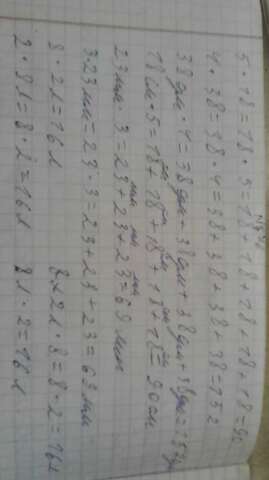 5 · 18 = 18 · 5 = 18 + 18 + 18 + 18 + 18 = 90
4 · 38 = 38 · 4 = 38 + 38 + 38 + 38 = 152
38 дм · 4 = 38 дм + 38 дм + 38 дм + 38 дм = 152 дм
18 см · 5 = 18 см + 18 см + 18 см + 18 см + 18 см = 90 см
23 мм · 3 = 23 мм + 23 мм + 23 мм = 69 мм
3 · 23 мм = 23 · 3 = 23 + 23 + 23 = 69 мм
8 · 2 л = 16 л 2 л · 8 = 8 · 2 = 16 л
2 · 8 л = 8 · 2 = 16 л 8 л · 2 = 16 л